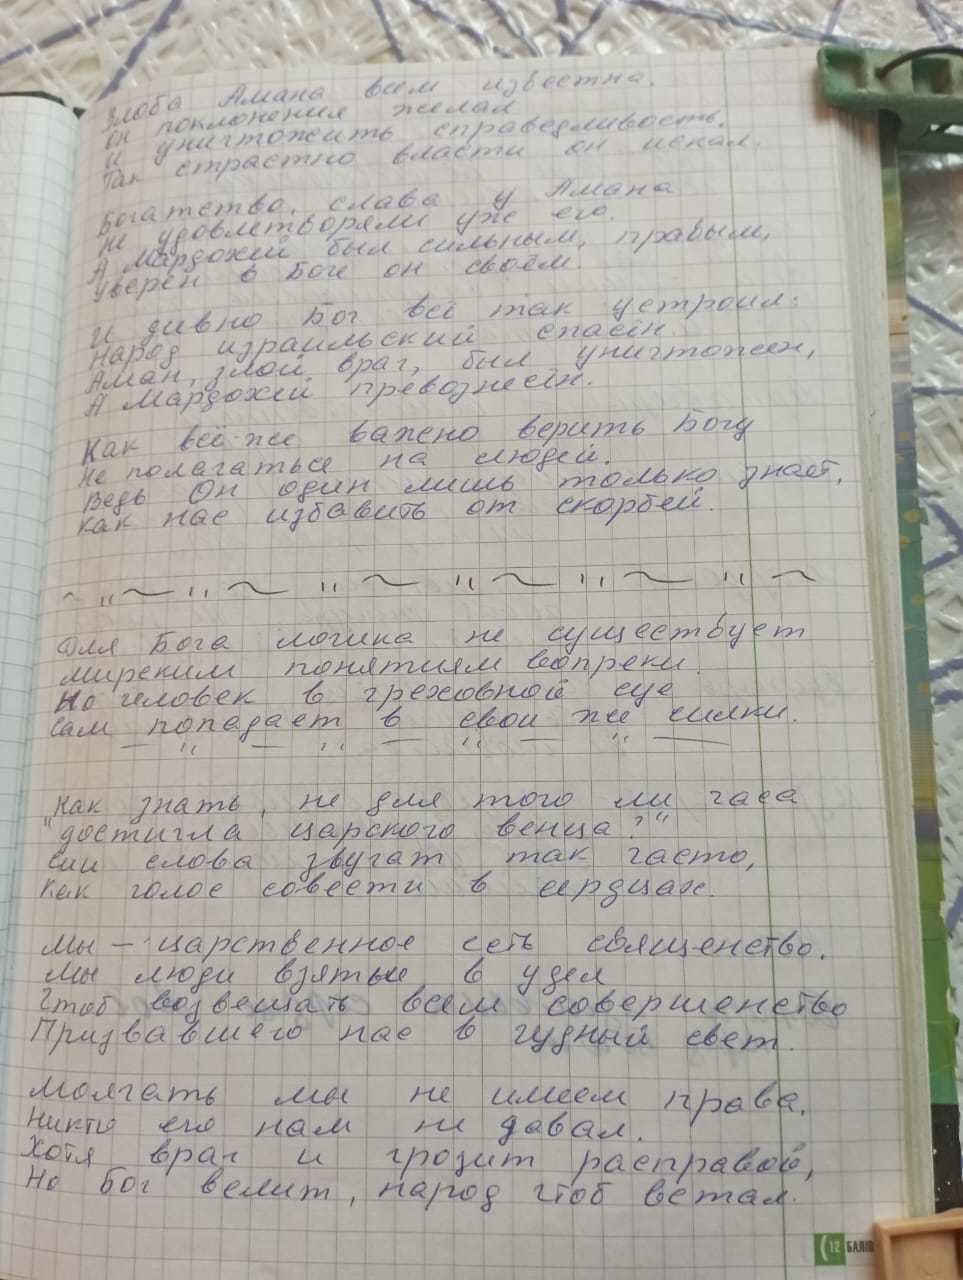 Злоба Амана всем известна.
Он поклонения желал
и уничтожить справедливость.
Так страстно власти он искал.
Богатство, слава у Амана
не удовлетворяли уже его.
А Мардохей был сильным, правым,
уверен в Боге он своём.
И дивно Бог всё так устроил:
Народ израильский спасён.
Аман, злой враг, был уничтожен,
А Мардохей превознесён.
Как всё-же важно верить Богу
не полагаться на людей.
Ведь Он один лишь только знает,
как нас избавить от скорбей.
Для Бога логика не существует
мирским понятиям вопреки.
Но человек в греховной суе
сам попадает в свои же силки.
"Как знать, не для того ли часа
"достигла царского венца?"
сии слова звучат так часто,
как голос совести в сердцах.
Мы - царственное есть священство.
Мы люди взятые в удел
Чтоб возвещать всем совершенство
Призвавшего нас в чудный свет.
Молчать мы не имеем права.
Никто его нам не давал.
Хотя враг и грозит расправой,
Но Бог велит, народ чтоб ветал.
12 БАЛІВ